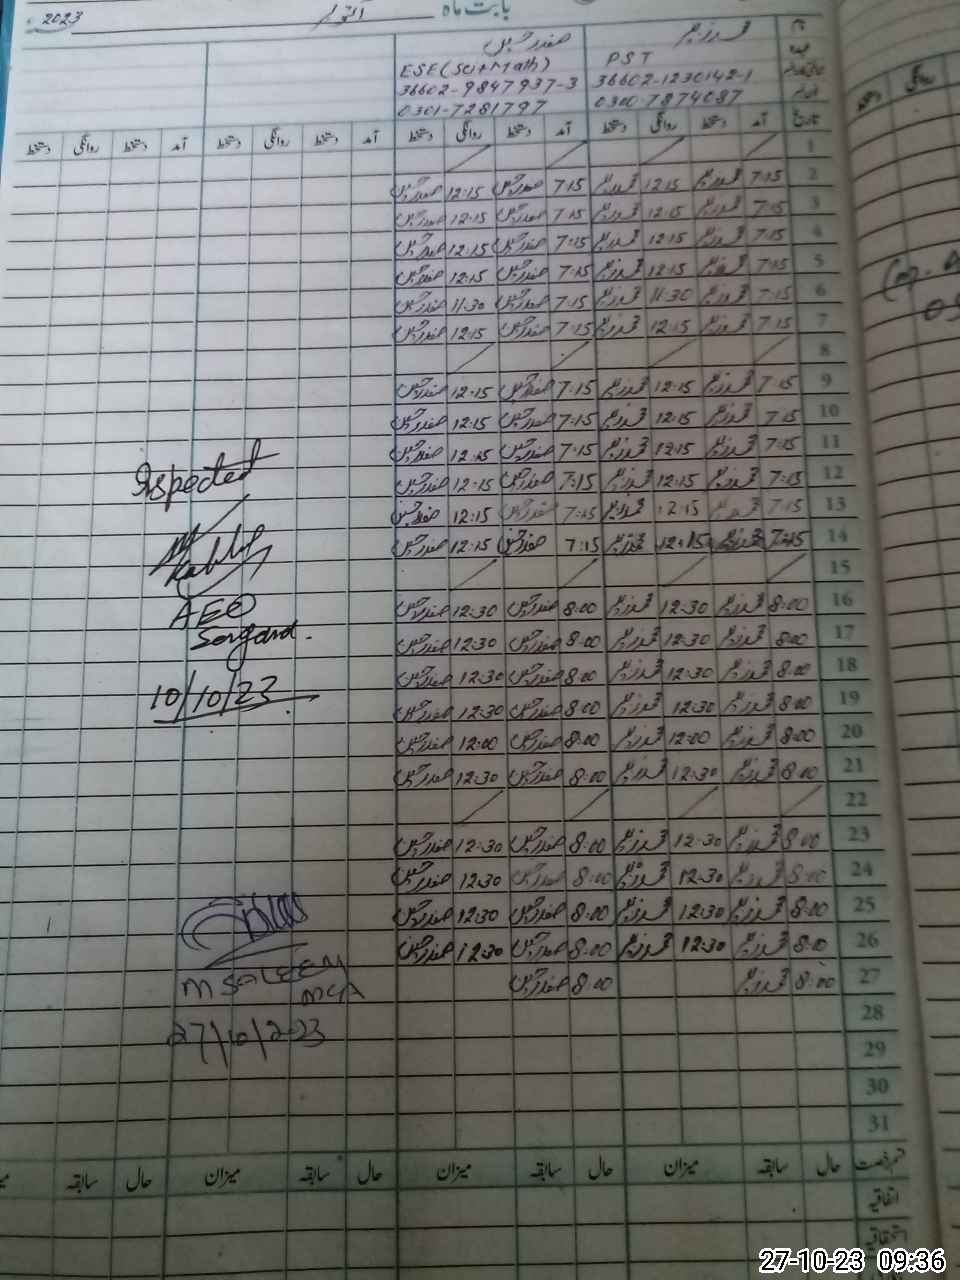 بابت ماہ اکتوبر 2023
نام محمد زبیر صفدر حسین
عہدہ PST ESE (Sci+Math)
36602-1230142-1 36602-9847937-3
0300-7874087 0301-7281797
تاریخ آمد دستخط روانگی دستخط آمد دستخط روانگی دستخط آمد دستخط روانگی دستخط آمد دستخط روانگی دستخط
1
2 7:15 محمد زبیر 12:15 محمد زبیر 7:15 صفدر حسین 12:15 صفدر حسین
3 7:15 محمد زبیر 12:15 محمد زبیر 7:15 صفدر حسین 12:15 صفدر حسین
4 7:15 محمد زبیر 12:15 محمد زبیر 7:15 صفدر حسین 12:15 صفدر حسین
5 7:15 محمد زبیر 12:15 محمد زبیر 7:15 صفدر حسین 12:15 صفدر حسین
6 7:15 محمد زبیر 11:30 محمد زبیر 7:15 صفدر حسین 11:30 صفدر حسین
7 7:15 محمد زبیر 12:15 محمد زبیر 7:15 صفدر حسین 12:15 صفدر حسین
8
9 7:15 محمد زبیر 12:15 محمد زبیر 7:15 صفدر حسین 12:15 صفدر حسین
10 7:15 محمد زبیر 12:15 محمد زبیر 7:15 صفدر حسین 12:15 صفدر حسین
11 7:15 محمد زبیر 12:15 محمد زبیر 7:15 صفدر حسین 12:15 صفدر حسین
12 7:15 محمد زبیر 12:15 محمد زبیر 7:15 صفدر حسین 12:15 صفدر حسین
13 7:15 محمد زبیر 12:15 محمد زبیر 7:15 صفدر حسین 12:15 صفدر حسین
14 7:15 محمد زبیر 12:15 محمد زبیر 7:15 صفدر حسین 12:15 صفدر حسین
15
16 8:00 محمد زبیر 12:30 محمد زبیر 8:00 صفدر حسین 12:30 صفدر حسین
17 8:00 محمد زبیر 12:30 محمد زبیر 8:00 صفدر حسین 12:30 صفدر حسین
18 8:00 محمد زبیر 12:30 محمد زبیر 8:00 صفدر حسین 12:30 صفدر حسین
19 8:00 محمد زبیر 12:30 محمد زبیر 8:00 صفدر حسین 12:30 صفدر حسین
20 8:00 محمد زبیر 12:00 محمد زبیر 8:00 صفدر حسین 12:00 صفدر حسین
21 8:00 محمد زبیر 12:30 محمد زبیر 8:00 صفدر حسین 12:30 صفدر حسین
22
23 8:00 محمد زبیر 12:30 محمد زبیر 8:00 صفدر حسین 12:30 صفدر حسین
24 8:00 محمد زبیر 12:30 محمد زبیر 8:00 صفدر حسین 12:30 صفدر حسین
25 8:00 محمد زبیر 12:30 محمد زبیر 8:00 صفدر حسین 12:30 صفدر حسین
26 8:00 محمد زبیر 12:30 محمد زبیر 8:00 صفدر حسین 12:30 صفدر حسین
27 8:00 محمد زبیر 8:00 صفدر حسین
28
29
30
31
Inspected
AEO
10/10/23
M SALEEM
MEA
27/10/2023
قسم رخصت حال سابقہ میزان حال سابقہ میزان حال سابقہ میزان حال سابقہ
اتفاقیہ
27-10-23 09:36